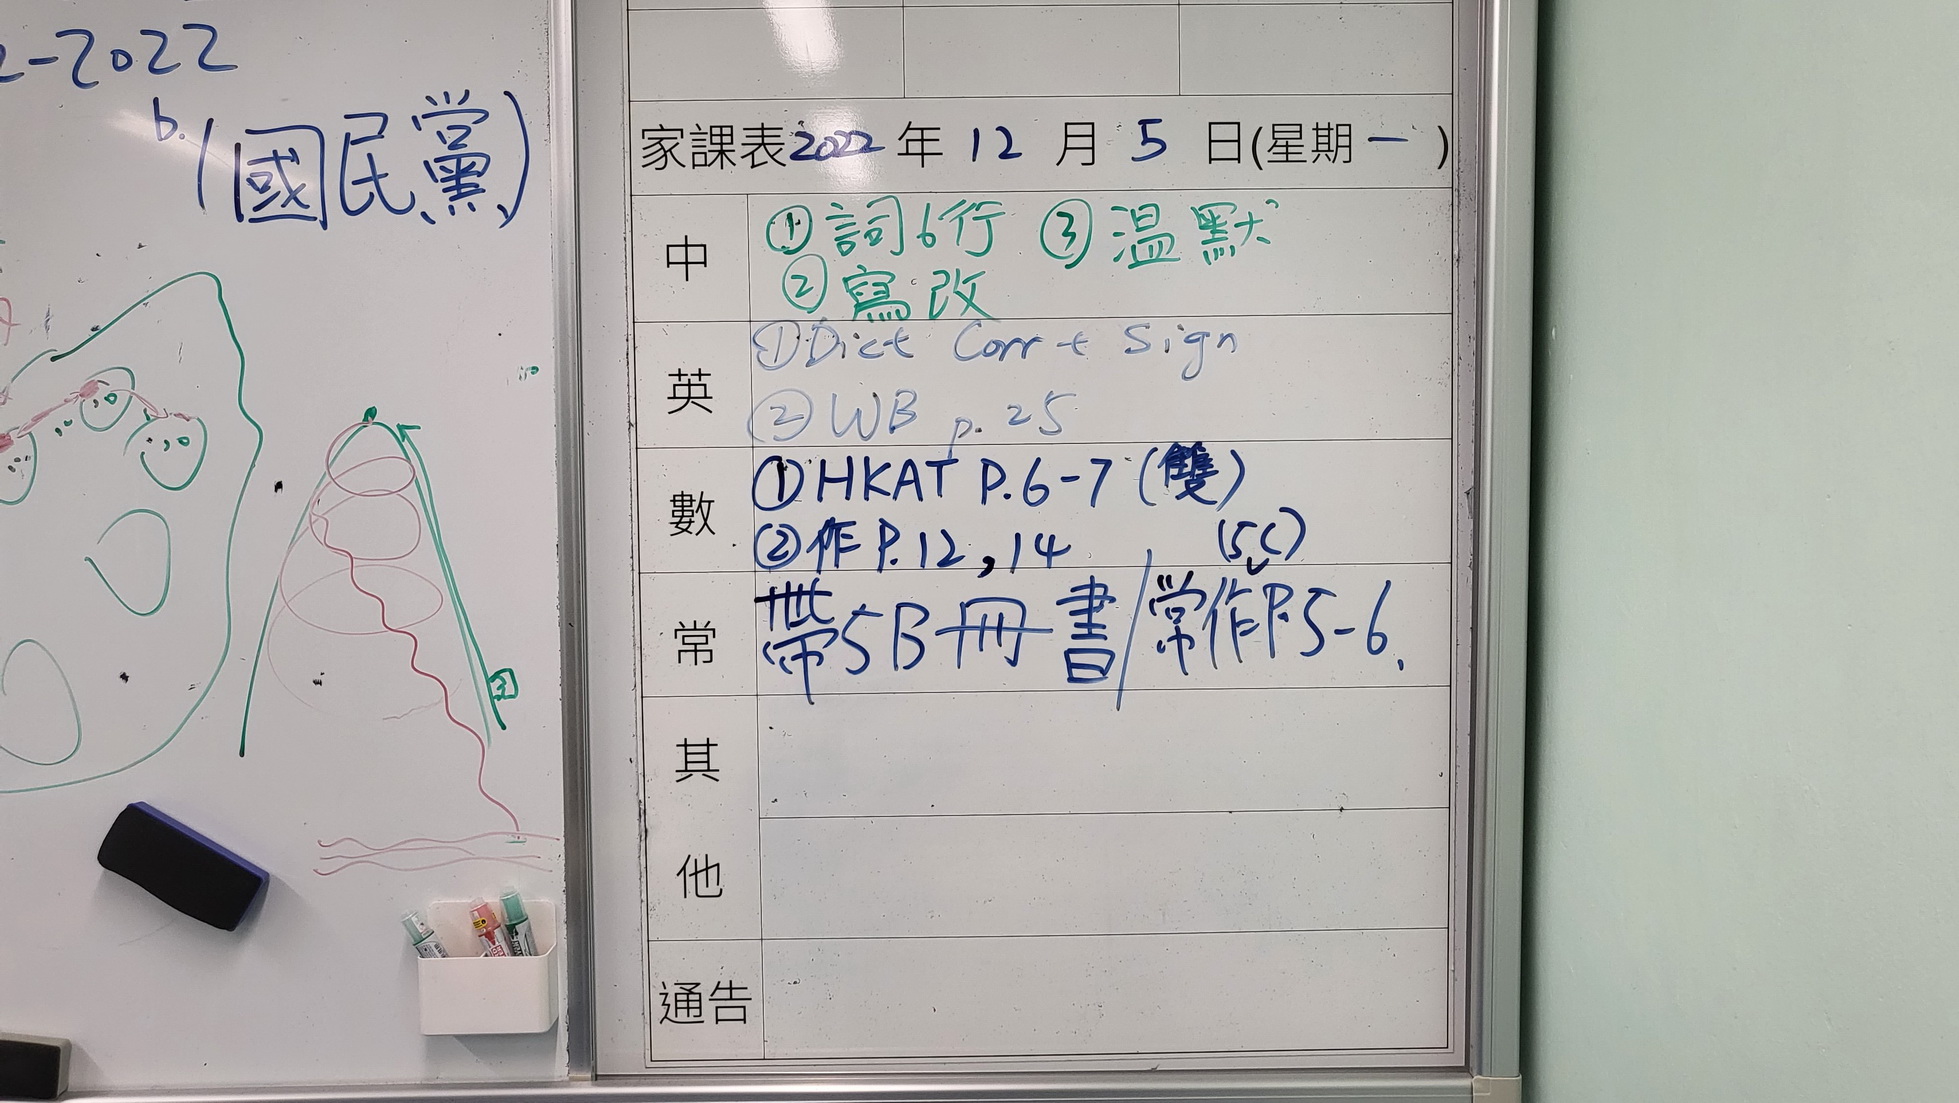 2-2022
b.
(國民黨)
家課表2022年12月5日(星期一)
中
①詞6行 ③温默
②寫改
英
①Dict Corr + Sign
②WB p.25
數
①HKAT P.6-7 (雙)
②作P.12,14
(5C)
常
帶5B冊書/常作P.5-6.
其
他
通告